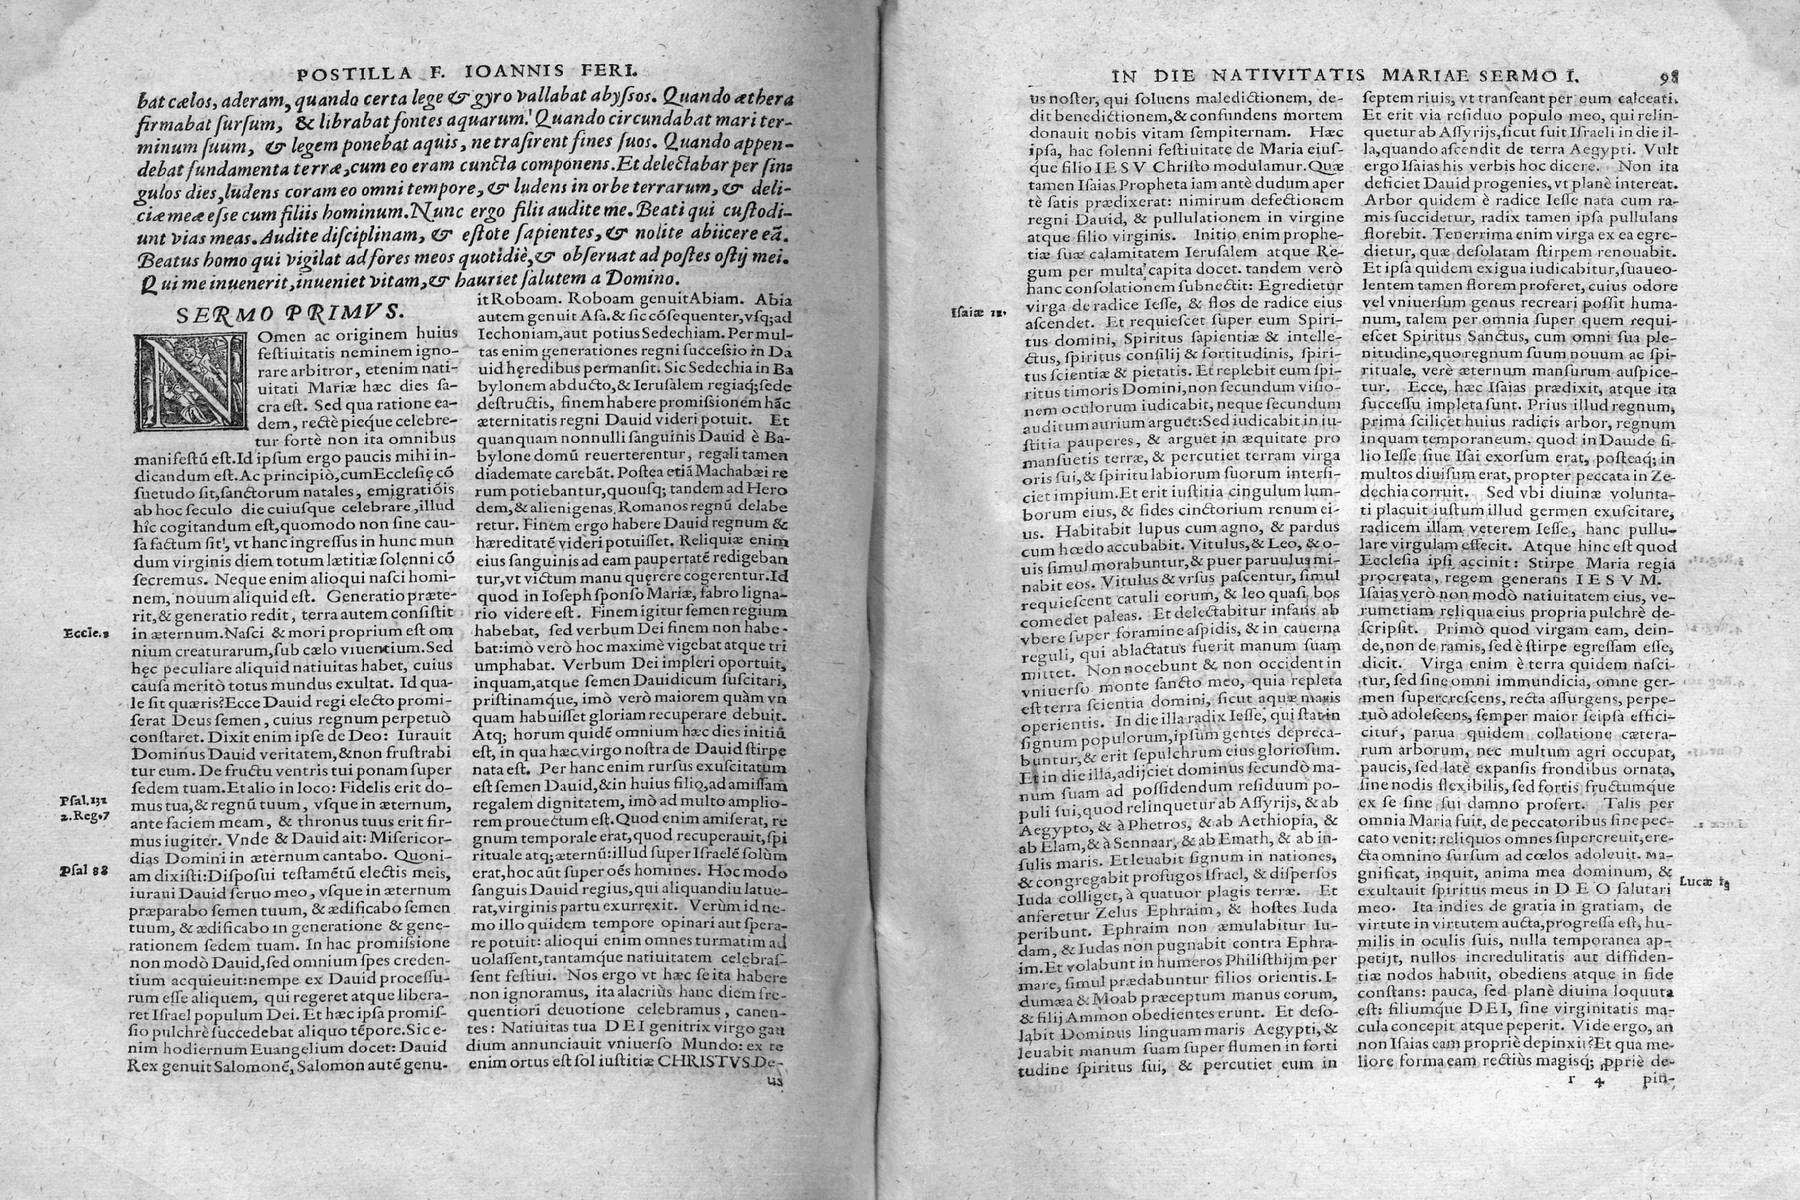 POSTILLA F. IOANNIS FERI.
bat cælos, aderam, quando certa lege & gyro vallabat abyſſos. Quando æthera
firmabat ſurſum, & librabat fontes aquarum. Quando circundabat mari ter-
minum ſuum, & legem ponebat aquis, ne traſirent fines ſuos. Quando appen-
debat fundamenta terræ, cum eo eram cuncta componens. Et delectabar per ſin-
gulos dies, ludens coram eo omni tempore, & ludens in orbe terrarum, & deli-
ciæ meæ eſse cum filiis hominum. Nunc ergo filii audite me. Beati qui cuſtodi-
unt vias meas. Audite diſciplinam, & eſtote ſapientes, & nolite abiicere eā.
Beatus homo qui vigilat ad fores meos quotidiè, & obſeruat ad poſtes oſtij mei.
Qui me inuenerit, inueniet vitam, & hauriet ſalutem a Domino.
SERMO PRIMVS.
NOmen ac originem huius
feſtiuitatis neminem igno-
rare arbitror, etenim nati-
uitati Mariæ hæc dies ſa-
cra eſt. Sed qua ratione ea-
dem, rectè pieque celebre-
tur fortè non ita omnibus
manifeſtū eſt. Id ipſum ergo paucis mihi in-
dicandum eſt. Ac principiò, cum Eccleſię cō
ſuetudo ſit, ſanctorum natales, emigratiōis
ab hoc ſeculo die cuiuſque celebrare, illud
hîc cogitandum eſt, quomodo non ſine cau-
ſa factum ſit, vt hanc ingreſſus in hunc mun
dum virginis diem totum lætitiæ ſolenni cō
ſecremus. Neque enim alioqui naſci homi-
nem, nouum aliquid eſt. Generatio præte-
rit, & generatio redit, terra autem conſiſtit
Eccle.1
in æternum. Naſci & mori proprium eſt om
nium creaturarum, ſub cælo viuentium. Sed
hęc peculiare aliquid natiuitas habet, cuius
cauſa meritò totus mundus exultat. Id qua-
le ſit quæris? Ecce Dauid regi electo promi-
ſerat Deus ſemen, cuius regnum perpetuò
conſtaret. Dixit enim ipſe de Deo: Iurauit
Dominus Dauid veritatem, & non fruſtrabi
tur eum. De fructu ventris tui ponam ſuper
ſedem tuam. Et alio in loco: Fidelis erit do-
Pſal.131
mus tua, & regnū tuum, vſque in æternum,
2.Reg.7
ante faciem meam, & thronus tuus erit fir-
mus iugiter. Vnde & Dauid ait: Miſericor-
dias Domini in æternum cantabo. Quoni-
Pſal 88
am dixiſti: Diſpoſui teſtamētū electis meis,
iuraui Dauid ſeruo meo, vſque in æternum
præparabo ſemen tuum, & ædificabo ſemen
tuum, & ædificabo in generatione & gene-
rationem ſedem tuam. In hac promiſſione
non modò Dauid, ſed omnium ſpes creden-
tium acquieuit: nempe ex Dauid proceſſu-
rum eſſe aliquem, qui regeret atque libera-
ret Iſrael populum Dei. Et hæc ipſa promiſ-
ſio pulchrè ſuccedebat aliquo tēpore. Sic e-
nim hodiernum Euangelium docet: Dauid
Rex genuit Salomonē, Salomon autē genu-
it Roboam. Roboam genuit Abiam. Abia
autem genuit Aſa. & ſic cōſequenter, vſq; ad
Iechoniam, aut potius Sedechiam. Per mul-
tas enim generationes regni ſucceſſio in Da
uid hęredibus permanſit. Sic Sedechia in Ba
bylonem abducto, & Ieruſalem regiaq; ſede
deſtructis, finem habere promiſſionem hāc
æternitatis regni Dauid videri potuit. Et
quanquam nonnulli ſanguinis Dauid è Ba-
bylone domū reuerterentur, regali tamen
diademate carebāt. Poſtea etiā Machabæi re
rum potiebantur, quouſq; tandem ad Hero
dem, & alienigenas Romanos regnū delabe
retur. Finem ergo habere Dauid regnum &
hæreditatē videri potuiſſet. Reliquiæ enim
eius ſanguinis ad eam paupertatē redigeban
tur, vt victum manu quęrere cogerentur. Id
quod in Ioſeph ſponſo Mariæ, fabro ligna-
rio videre eſt. Finem igitur ſemen regium
habebat, ſed verbum Dei finem non habe-
bat: imò verò hoc maximè vigebat atque tri
umphabat. Verbum Dei impleri oportuit,
inquam, atque ſemen Dauidicum ſuſcitari,
priſtinamque, imò verò maiorem quàm vn
quam habuiſſet gloriam recuperare debuit.
Atq; horum quidē omnium hæc dies initiū
eſt, in qua hæc virgo noſtra de Dauid ſtirpe
nata eſt. Per hanc enim rurſus exuſcitatum
eſt ſemen Dauid, & in huius filio, ad amiſſam
regalem dignitatem, imò ad multo amplio-
rem prouectum eſt. Quod enim amiſerat, re
gnum temporale erat, quod recuperauit, ſpi
rituale atq; æternū: illud ſuper Iſraelē ſolùm
erat, hoc aūt ſuper oēs homines. Hoc modo
ſanguis Dauid regius, qui aliquandiu latue-
rat, virginis partu exurrexit. Verùm id ne-
mo illo quidem tempore opinari aut ſpera-
re potuit: alioqui enim omnes turmatim ad
uolaſſent, tantamque natiuitatem celebraſ-
ſent feſtiui. Nos ergo vt hæc ſe ita habere
non ignoramus, ita alacriùs hanc diem fre-
quentiori deuotione celebramus, canen-
tes: Natiuitas tua DEI genitrix virgo gau
dium annunciauit vniuerſo Mundo: ex te
enim ortus eſt ſol iuſtitiæ CHRISTVS De-
us
IN DIE NATIVITATIS MARIAE SERMO I. 98
us noſter, qui ſoluens maledictionem, de-
dit benedictionem, & confundens mortem
donauit nobis vitam ſempiternam. Hæc
ipſa, hac ſolenni feſtiuitate de Maria eiuſ-
que filio IESV Chriſto modulamur. Quæ
tamen Iſaias Propheta iam antè dudum aper
tè ſatis prædixerat: nimirum defectionem
regni Dauid, & pullulationem in virgine
atque filio virginis. Initio enim prophe-
tiæ ſuæ calamitatem Ieruſalem atque Re-
gum per multa capita docet. tandem verò
hanc conſolationem ſubnectit: Egredietur
Iſaiæ 11.
virga de radice Ieſſe, & flos de radice eius
aſcendet. Et requieſcet ſuper eum Spiri-
tus domini, Spiritus ſapientiæ & intelle-
ctus, ſpiritus conſilij & fortitudinis, ſpiri-
tus ſcientiæ & pietatis. Et replebit eum ſpi-
ritus timoris Domini, non ſecundum viſio-
nem oculorum iudicabit, neque ſecundum
auditum aurium arguet: Sed iudicabit in iu-
ſtitia pauperes, & arguet in æquitate pro
manſuetis terræ, & percutiet terram virga
oris ſui, & ſpiritu labiorum ſuorum interfi-
ciet impium. Et erit iuſtitia cingulum lum-
borum eius, & fides cinctorium renum ei-
us. Habitabit lupus cum agno, & pardus
cum hœdo accubabit. Vitulus, & Leo, & o-
uis ſimul morabuntur, & puer paruulus mi-
nabit eos. Vitulus & vrſus paſcentur, ſimul
requieſcent catuli eorum, & leo quaſi bos
comedet paleas. Et delectabitur infans ab
vbere ſuper foramine aſpidis, & in cauerna
reguli, qui ablactatus fuerit manum ſuam
mittet. Non nocebunt & non occident in
vniuerſo monte ſancto meo, quia repleta
eſt terra ſcientia domini, ſicut aquæ maris
operientis. In die illa radix Ieſſe, qui ſtat in
ſignum populorum, ipſum gentes depreca-
buntur, & erit ſepulchrum eius glorioſum.
Et in die illa, adijciet dominus ſecundò ma-
num ſuam ad poſſidendum reſiduum po-
puli ſui, quod relinquetur ab Aſſyrijs, & ab
Aegypto, & à Phetros, & ab Aethiopia, &
ab Elam, & à Sennaar, & ab Emath, & ab in-
ſulis maris. Et leuabit ſignum in nationes,
& congregabit profugos Iſrael, & diſperſos
Iuda colliget, à quatuor plagis terræ. Et
anferetur Zelus Ephraim, & hoſtes Iuda
peribunt. Ephraim non æmulabitur Iu-
dam, & Iudas non pugnabit contra Ephra-
im. Et volabunt in humeros Philiſthijm per
mare, ſimul prædabuntur filios orientis. I-
dumæa & Moab præceptum manus eorum,
& filij Ammon obedientes erunt. Et deſo-
labit Dominus linguam maris Aegypti, &
leuabit manum ſuam ſuper flumen in forti
tudine ſpiritus ſui, & percutiet eum in
ſeptem riuis, vt tranſeant per eum calceati.
Et erit via reſiduo populo meo, qui relin-
quetur ab Aſſyrijs, ſicut fuit Iſraeli in die il-
la, quando aſcendit de terra Aegypti. Vult
ergo Iſaias his verbis hoc dicere. Non ita
deficiet Dauid progenies, vt planè intereat.
Arbor quidem è radice Ieſſe nata cum ra-
mis ſuccidetur, radix tamen ipſa pullulans
florebit. Tenerrima enim virga ex ea egre-
dietur, quæ deſolatam ſtirpem renouabit.
Et ipſa quidem exigua iudicabitur, ſuaueo-
lentem tamen florem proferet, cuius odore
vel vniuerſum genus recreari poſſit huma-
num, talem per omnia ſuper quem requi-
eſcet Spiritus Sanctus, cum omni ſua ple-
nitudine, quo regnum ſuum nouum ac ſpi-
rituale, verè æternum manſurum auſpice-
tur. Ecce, hæc Iſaias prædixit, atque ita
ſucceſſu impleta ſunt. Prius illud regnum,
prima ſcilicet huius radicis arbor, regnum
inquam temporaneum. quod in Dauide fi-
lio Ieſſe ſiue Iſai exorſum erat, poſteaq; in
multos diuiſum erat, propter peccata in Ze-
dechia corruit. Sed vbi diuinæ volunta-
ti placuit iuſtum illud germen exuſcitare,
radicem illam veterem Ieſſe, hanc pullu-
lare virgulam effecit. Atque hinc eſt quod
Eccleſia ipſi accinit: Stirpe Maria regia
procreata, regem generans IESVM.
Iſaias verò non modò natiuitatem eius, ve-
rumetiam reliqua eius propria pulchrè de-
ſcripſit. Primò quod virgam eam, dein-
de, non de ramis, ſed è ſtirpe egreſſam eſſe,
dicit. Virga enim è terra quidem naſci-
tur, ſed ſine omni immundicia, omne ger-
men ſupercreſcens, recta aſſurgens, perpe-
tuò adoleſcens, ſemper maior ſeipſa effici-
citur, parua quidem collatione cætera-
rum arborum, nec multum agri occupat,
paucis, ſed latè expanſis frondibus ornata,
ſine nodis flexibilis, ſed fortis fructumque
ex ſe ſine ſui damno profert. Talis per
omnia Maria fuit, de peccatoribus ſine pec-
cato venit: reliquos omnes ſupercreuit, ere-
cta omnino ſurſum ad cœlos adoleuit. Ma-
gnificat, inquit, anima mea dominum, &
Lucæ 1.
exultauit ſpiritus meus in DEO ſalutari
meo. Ita indies de gratia in gratiam, de
virtute in virtutem aucta, progreſſa eſt, hu-
milis in oculis ſuis, nulla temporanea ap-
petijt, nullos incredulitatis aut diffiden-
tiæ nodos habuit, obediens atque in fide
conſtans: pauca, ſed planè diuina loquuta
eſt: filiumque DEI, ſine virginitatis ma-
cula concepit atque peperit. Vide ergo, an
non Iſaias eam propriè depinxit? Et qua me-
liore forma eam rectiùs magisq; ꝓpriè de-
r 4 pin-